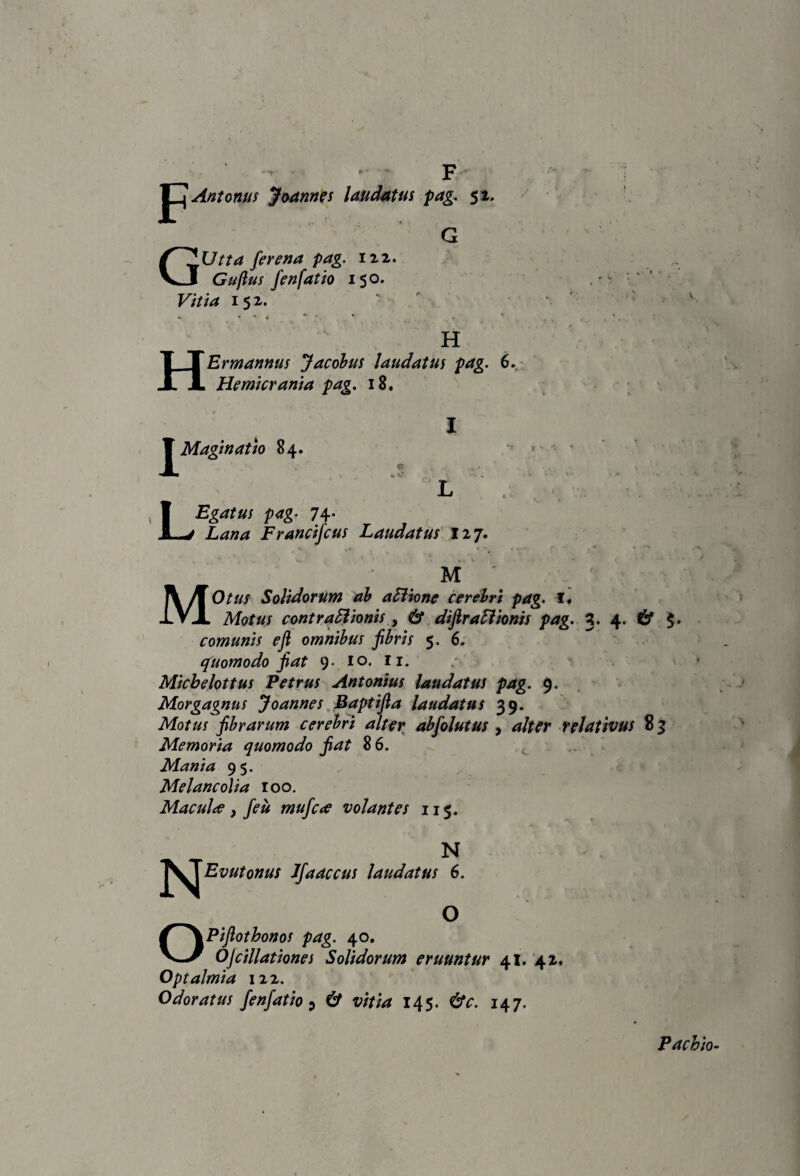 F
FAntonus Joannes laudatus pag. 52.
G
GUtta serena pag. 122.
Gustus sensatio 150.
Vitia 152.
H
HErmannus Jacobus laudatus pag. 6.
Hemicrania pag. 18.
I
IMaginatio 84.
L
LEgatus pag. 74.
Lana Franciſcus Laudatus 127.
M
MOtus Solidorum ab actione cerebri pag. 1.
Motus contractionis, & diſtractionis pag. 3. 4. & 5.
comunis eſt omnibus fibris 5. 6.
quomodo fiat 9. 10. 11.
Michelottus Petrus Antonius laudatus pag. 9.
Morgagnus Joannes Baptiſta laudatus 39.
Motus fibrarum cerebri alter abſolutus, alter relativus 83
Memoria quomodo fiat 86.
Mania 95.
Melancolia 100.
Maculæ, ſeù muſcæ volantes 115.
N
NEvutonus Iſaaccus laudatus 6.
O
OPiſtothonos pag. 40.
Oſcillationes Solidorum eruuntur 41. 42.
Optalmia 122.
Odoratus ſenſatio, & vitia 145. &c. 147.
Pachio-